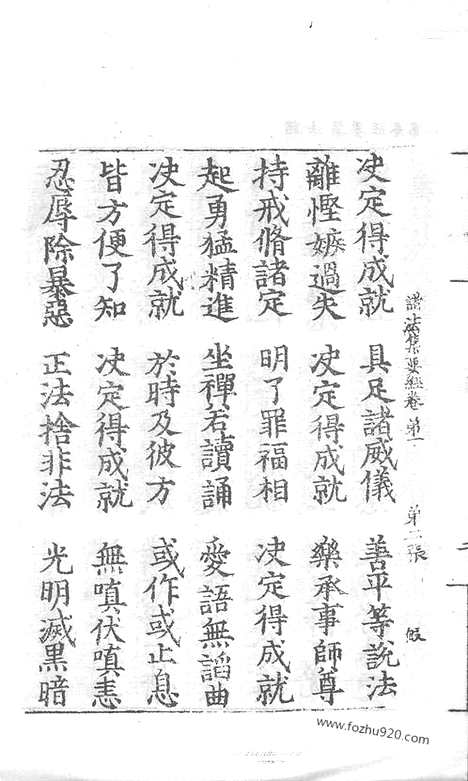 諸法集要經卷第一 第二張 假
決定得成就 具足諸威儀 善平等說法
離慳嫉過失 決定得成就 樂承事師尊
持戒脩諸定 明了罪福相 決定得成就
起勇猛精進 坐禪若讀誦 愛語無諂曲
決定得成就 於時及彼方 或作或止息
皆方便了知 決定得成就 無嗔伏嗔恚
忍辱除暴惡 正法捨非法 光明滅黑暗
www.fozhu920.com